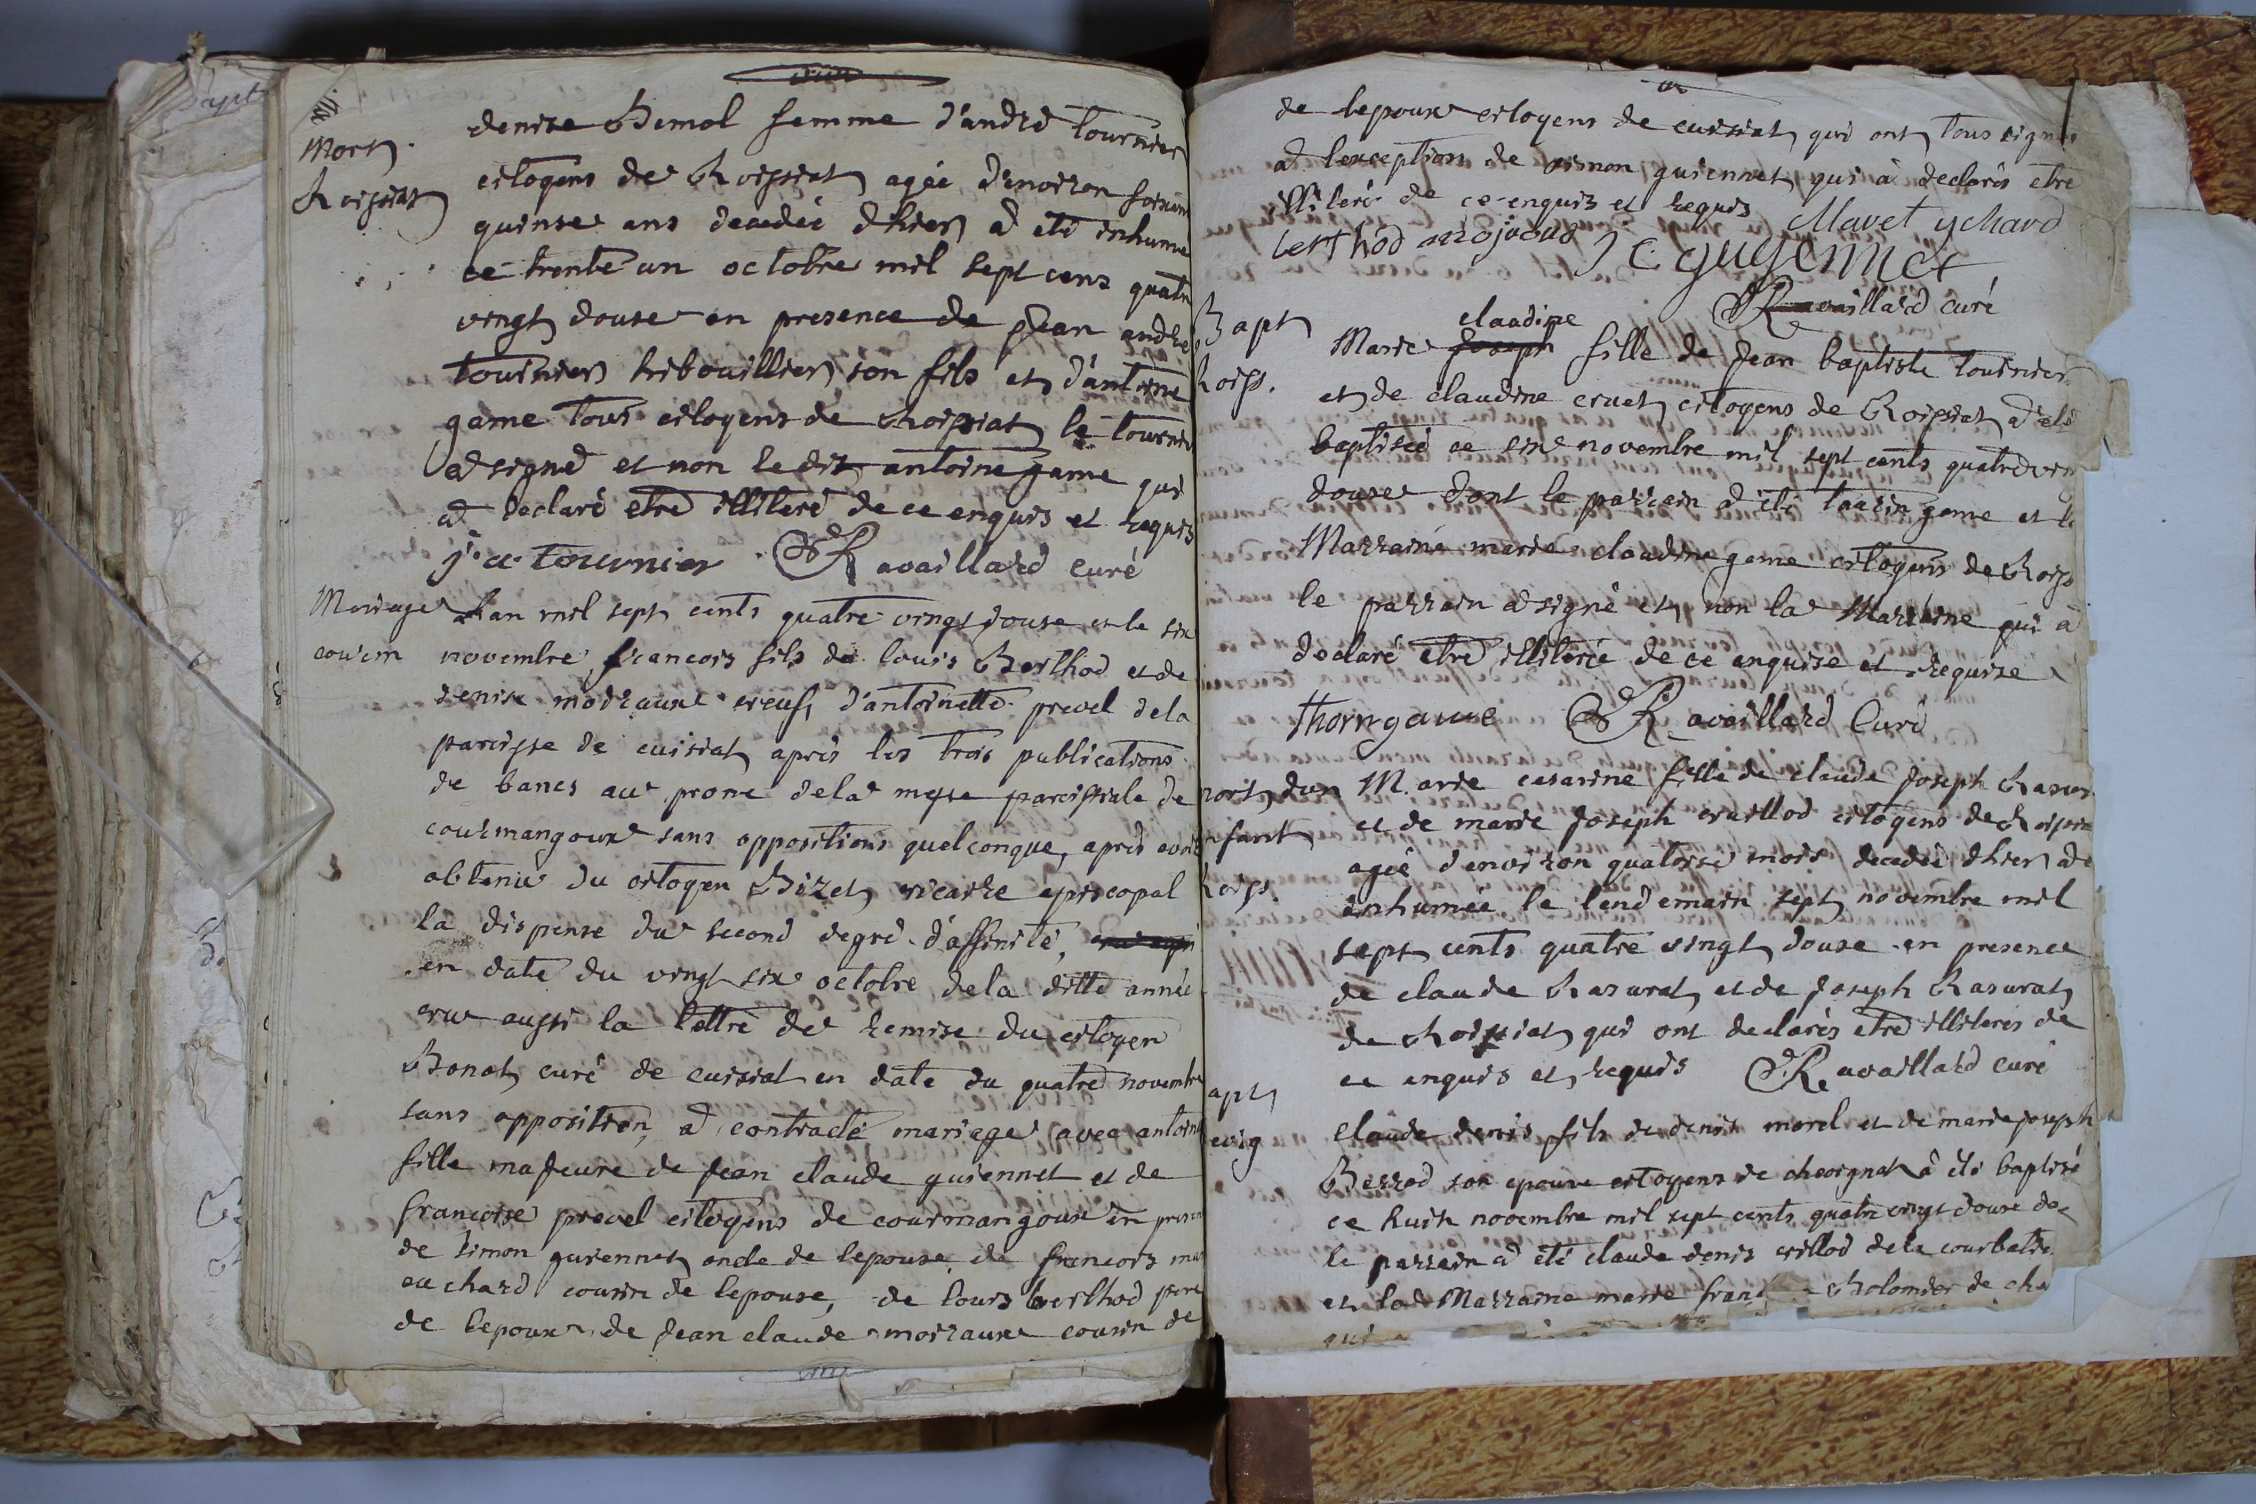 Mort
Roissiat
denise Bemol femme d'andré tournier
citogens de Roissiat agée d'environ soixante
quinse ans decedée dhier a eté inhumé
ce trente un octobre mil sept cens quatre
vingt douse en presence de Jean andré
tournier hibouillier son fils et d'antoine
game tous citogens de Roissiat le tournier
a signé et non le dit antoine game qui
a declaré etre illiteré de ce enquis et requis
j. a tournier Ravaillard curé
Mariage
courm
Lan mil sept cents quatre vingt douse et le six
novembre francois fils de louis Berthod et de
denise moiraux veuf d'antoinette prevel dela
paroisse de cuisiat après les trois publications
de bancs au prone dela messe paroissiale de
courmangoux sans oppositions quelconque, après avoir
obtenu du citogen Bizet vicaire episcopal
la dispense du second degré d'affinité,
en date du vingt six octobre dela ditte année
vu aussi la lettre de remise du citogen
Bonat curé de cuisiat en date du quatre novembre
sans opposition, a contracté mariage avec antoine
fille majeure de Jean claude guiennet et de
francoise prevel citogens de courmangoux en presen
de simon guiennet oncle de lepouse de francois ma
au chard cousin de lepouse, de louis berthod pere
de lepoux, de Jean claude moiraux cousin de
de lepoux citogens de cuisiat qui ont tous signés
a lexception de simon guiennet qui à declarés etre
illiteré de ce enquis et requis Mavet ychard
berthod J C guyennet
Ravaillard curé
Bapt
Roiss.
claudine
Marie Joseph fille de Jean baptiste tournier
et de claudine cruet citogens de Roissiat a eté
baptisée ce six novembre mil sept cents quatre ving
douse dont le parrain a eté taorin game et la
Marraine marie claudine game citogens de Roiss
le parrain a signé et non la Marraine qui a
declaré etre illiterée de ce enquise et requise
thorin game Ravaillard Curé
mort dun
enfant
Roiss.
Marie cesarine fille de claude Joseph Rasur
et de marie Joseph vuillod citogens de Roissia
agée d'environ quatorse mois decedée dhier a é
inhumée le lendemain sept novembre mil
sept cents quatre vingt douse en presence
de claude Rasurat et de Joseph Rasurat
de Roissiat qui ont declarés etre illiterés de
ce enquis et requis Ravaillard curé
apt
evig
claude denis fils de denis morel et de marie joseph
Berrod son epouse citogens de chevignat à eté baptisé
ce huit novembre mil sept cents quatre vingt douse do
le parrain a eté claude denis villod dela courbatre
et la Marraine marie fran Rolomier de che
qui